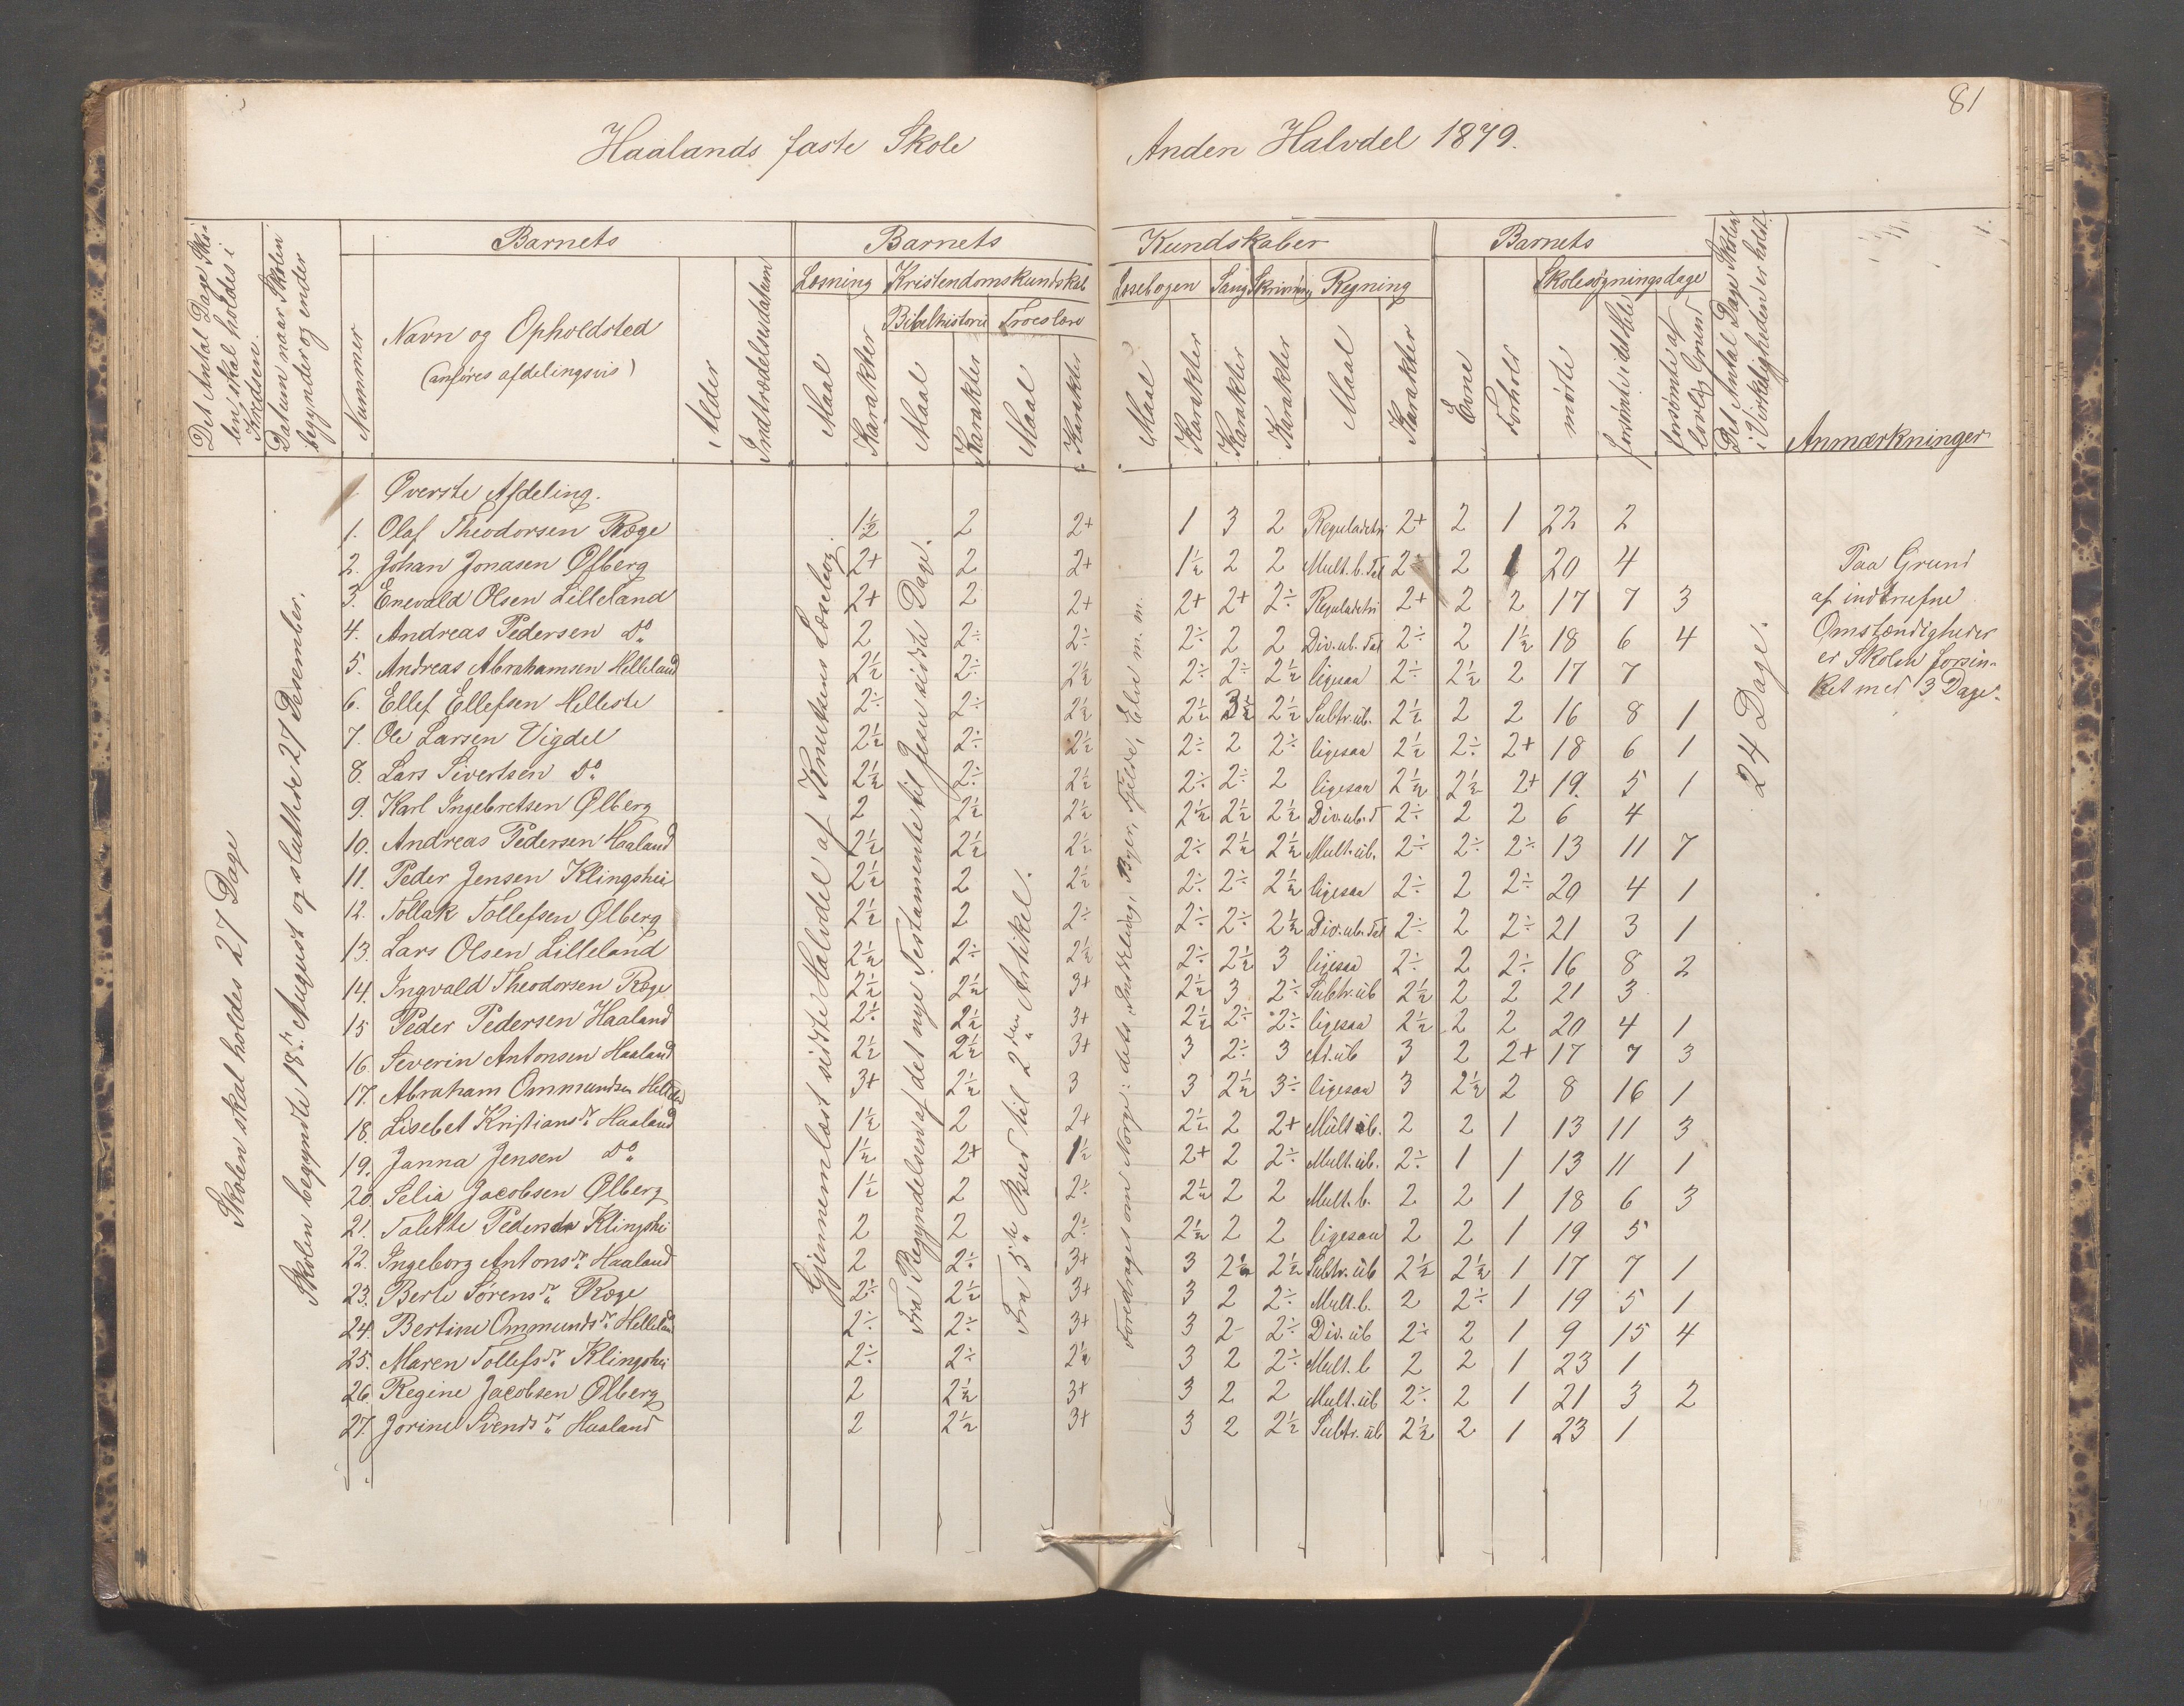 81
Haalands faste Skole Anden Halvdel 1879.
Det Antal Dage Sko-
len skal holdes i
Kredsen.
Datum naar Skolen
begynder og ender
Nummer
Barnets
Navn og Opholdsted
(anføres afdelingsvis)
Alder
Indtrædelsesdatum
Barnets Kundskaber
Læsning Kristendomskundskab Læsebogen Sang Skrivning Regning
Bibelhistorie Troeslære
Maal Karakter Maal Karakter Maal Karakter Maal Karakter Karakter Karakter Maal Karakter
Barnets
Evne Forhold
Skolesøgningsdage
mødte forsømte i det Hele forsømte af lovlig Grund
Det Antal Dage Skolen
i Virkeligheden er holdt.
Anmærkninger
Skolen skal holdes 27 Dage
Skolen begyndte 18de August og sluttede 27 Desember.
Gjennemlæst sidste Halvdel af Knutsens Læsebog.
Fra Begyndelsen af det nye Testamente til Jesu sidste Dage.
Fra 5te Bud til 2den Artikel.
Foredraget om Norge: dets Inddeling, Byer, Fjelde, Elve m. m.
24 Dage.
Paa Grund
af indtrufne
Omstændigheder
er Skolen forsin-
ket med 3 Dage.
Øverste Afdeling.
1. Olaf Theodorsen Røge 1½ 2 2+ 1 3 2 Reguladetri 2+ 2 1 22 2
2. Johan Jonasen Ølberg 2+ 2 2+ 1½ 2 2 Mult. b. Tal 2÷ 2 1 20 4
3. Enevald Olsen Lilleland 2+ 2 2+ 2+ 2+ 2÷ Reguladetri 2+ 2 2 17 7 3
4. Andreas Pedersen Do 2 2÷ 2÷ 2÷ 2 2 Div. ub. Tal 2÷ 2 1½ 18 6 4
5. Andreas Abrahamsen Helleland 2½ 2÷ 2½ 2÷ 2÷ 2½ ligesaa 2÷ 2½ 2 17 7
6. Ellef Ellefsen Helleste 2÷ 2÷ 2½ 2½ 3½ 2½ Subtr. ub. 2½ 2 2 16 8 1
7. Ole Larsen Vigdel 2½ 2÷ 2½ 2÷ 2 2÷ ligesaa 2½ 2÷ 2+ 18 6 1
8. Lars Sivertsen Do 2½ 2÷ 2½ 2÷ 2÷ 2 ligesaa 2½ 2½ 2+ 19. 5 1
9. Karl Ingebretsen Ølberg 2 2½ 2½ 2½ 2½ 2½ Div. ub. T 2÷ 2 2 6 4
10. Andreas Pedersen Haaland 2½ 2½ 2½ 2÷ 2½ 2½ Mult. ub. 2÷ 2÷ 2÷ 13 11 7
11. Peder Jensen Klingshei 2½ 2 2½ 2÷ 2÷ 2½ ligesaa 2÷ 2 2÷ 20 4 1
12. Tollak Tollefsen Ølberg 2½ 2 2÷ 2÷ 2÷ 2½ Div. ub. Tal 2÷ 2 2÷ 21 3 1
13. Lars Olsen Lilleland 2½ 2÷ 2½ 2÷ 2½ 3 ligesaa 2÷ 2 2÷ 16 8 2
14. Ingvald Theodorsen Røge 2½ 2½ 3+ 2½ 3 2÷ Subtr. ub 2½ 2 2 21 3
15 Peder Pedersen Haaland 2÷ 2½ 3+ 2½ 2÷ 2÷ ligesaa 2½ 2 2 20 4 1
16. Severin Antonsen Haaland 2½ 2½ 3+ 3 2÷ 3 Ad. ub 3 2 2+ 17 7 3
17. Abraham Ommundsen 3+ 2½ 3 3 2½ 3÷ ligesaa 3 2½ 2 8 16 1
18. Lisebet Kristiansdr Haaland 1½ 2 2+ 2½ 2 2+ Mult ub. 2 2 1 13 11 3
19. Janna Jensen Do 1½ 2+ 1½ 2+ 2 2÷ Mult. ub. 2÷ 1 1 13 11 1
20. Selia Jacobsen Ølberg 1½ 2 2÷ 2½ 2 2 Mult. b. 2 2 1 18 6 3
21. Talette Pedersdr Klingshei 2 2 2÷ 2½ 2 2 ligesaa 2 2 1 19 5
22. Ingeborg Antonsdr Haaland 2 2÷ 3+ 3 2½ 2½ Subtr. ub 2½ 2½ 1 17 7 1
23. Berte Sørensdr Røge 2÷ 2½ 3+ 3 2 2÷ Mult. b. 2 2÷ 1 19 5 1
24. Bertine Ommundsdr Helleland 2÷ 2÷ 3+ 3 2 2÷ Div. ub 2÷ 2 1 9 15 4
25. Maren Tollefsdr Klingshei 2÷ 2÷ 2½ 3 2 2÷ Mult. b 2 2 1 23 1
26. Regine Jacobsen Ølberg 2 2½ 3+ 3 2 2 Mult. ub 2÷ 2 1 21 3 2
27. Jorine Svendsdr Haaland 2 2½ 3+ 3 2 2½ Subtr. ub 2½ 2 1 23 1